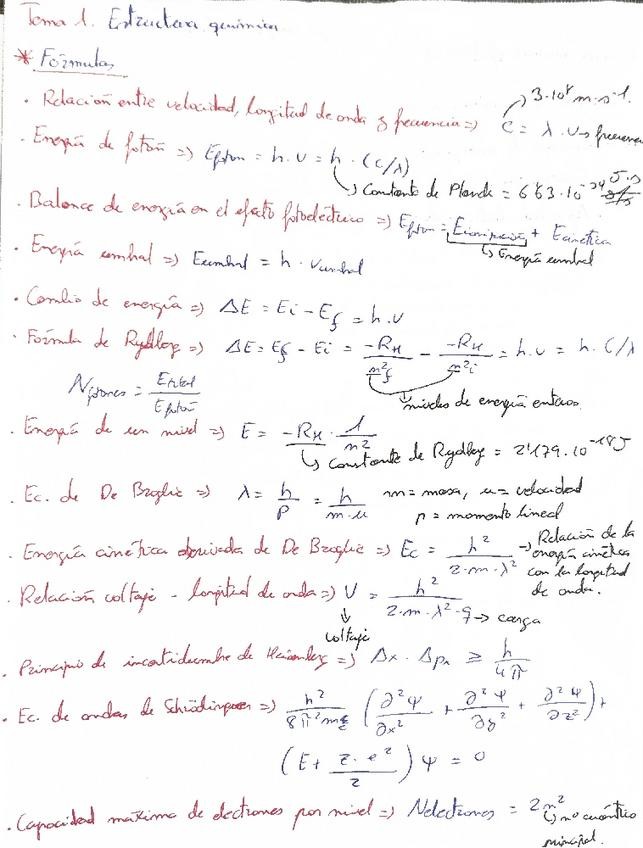 Tema 1. Estructura química
* Fórmulas
3·10⁸ m·s⁻¹.
· Relación entre velocidad, longitud de onda y frecuencia => c = λ · ν → frecuencia
· Energía de fotón => Efoton = h · ν = h · (c/λ)
↳ Constante de Planck = 6'63·10⁻³⁴ J·s
· Balance de energía en el efecto fotoeléctrico => Efoton = Eionización + Ecinética
↳ Energía umbral
· Energía umbral => Eumbral = h · νumbral
· Cambio de energía => ΔE = Ei − Ef = h·ν
· Fórmula de Rydberg => ΔE = Ef − Ei = −RH/n²f − −RH/n²i = h·ν = h · C/λ
Nfotones = Etotal/Efotón
niveles de energía enteros.
· Energía de un nivel => E = −RH · 1/n²
↳ Constante de Rydberg = 2'179·10⁻¹⁸J
· Ec. de De Broglie => λ = h/p = h/m·u m = masa, u = velocidad
p = momento lineal
· Energía cinética derivada de De Broglie => Ec = h²/2·m·λ² → Relación de la energía cinética con la longitud de onda.
· Relación voltaje - longitud de onda => V = h²/2·m·λ²·q → carga
↓ voltaje
· Principio de incertidumbre de Heisenberg => Δx · Δpx ≥ h/4π
· Ec. de ondas de Schrödinger => h²/8π²m (∂²Ψ/∂x² + ∂²Ψ/∂y² + ∂²Ψ/∂z²) +
(E + z·e²/z) Ψ = 0
· Capacidad máxima de electrones por nivel => Nelectrones = 2n²
↳ nº cuántico
principal.